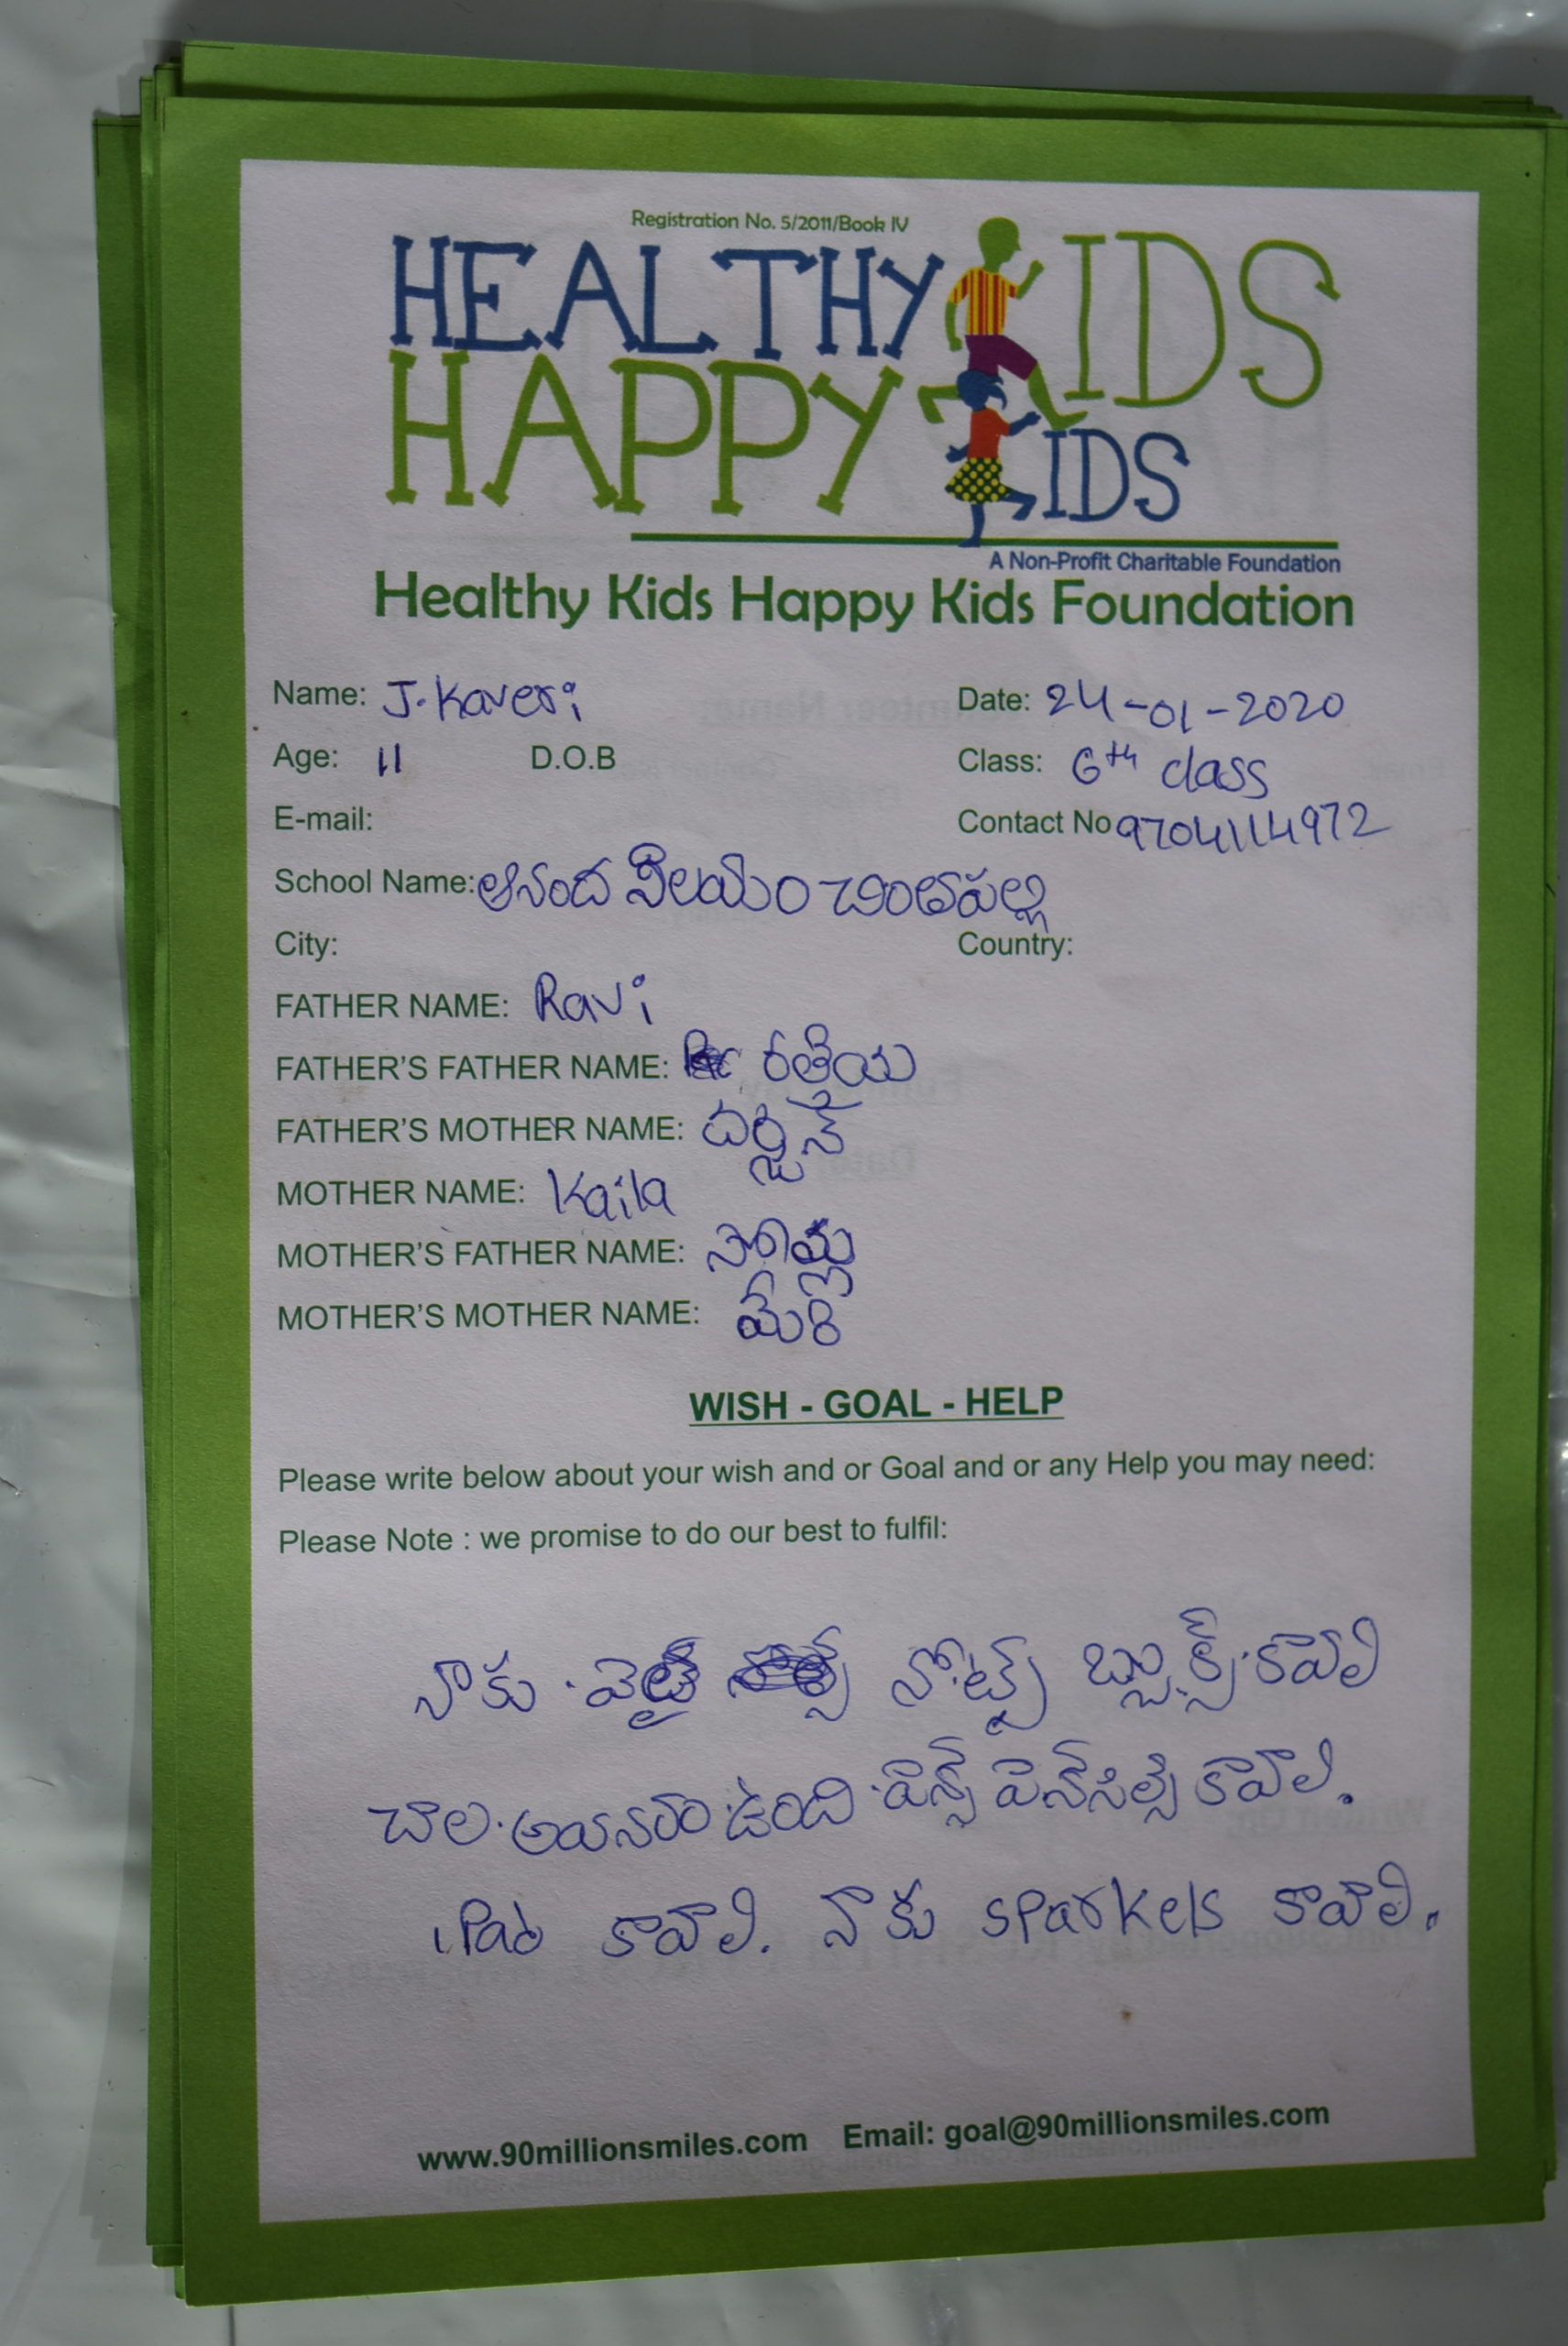 Registration No. 5/2011/Book IV
HEALTHY KIDS
HAPPY KIDS
A Non-Profit Charitable Foundation
Healthy Kids Happy Kids Foundation
Name: J. Kaveri Date: 24-01-2020
Age: 11 D.O.B Class: 6th class
E-mail: Contact No 9704114972
School Name: ఆనంద నిలయం చింతాపల్లి
City: Country:
FATHER NAME: Ravi
FATHER'S FATHER NAME:
FATHER'S MOTHER NAME:
MOTHER NAME: Kaila
MOTHER'S FATHER NAME:
MOTHER'S MOTHER NAME: మేరి
WISH - GOAL - HELP
Please write below about your wish and or Goal and or any Help you may need:
Please Note : we promise to do our best to fulfil:
నాకు. నోట్స్ బుక్స్. కావాలి
చాల. ఉంది. పెన్స్ పెన్‌సిల్స్ కావాలి.
iPad కావాలి. నాకు sparkels కావాలి.
www.90millionsmiles.com Email: goal@90millionsmiles.com